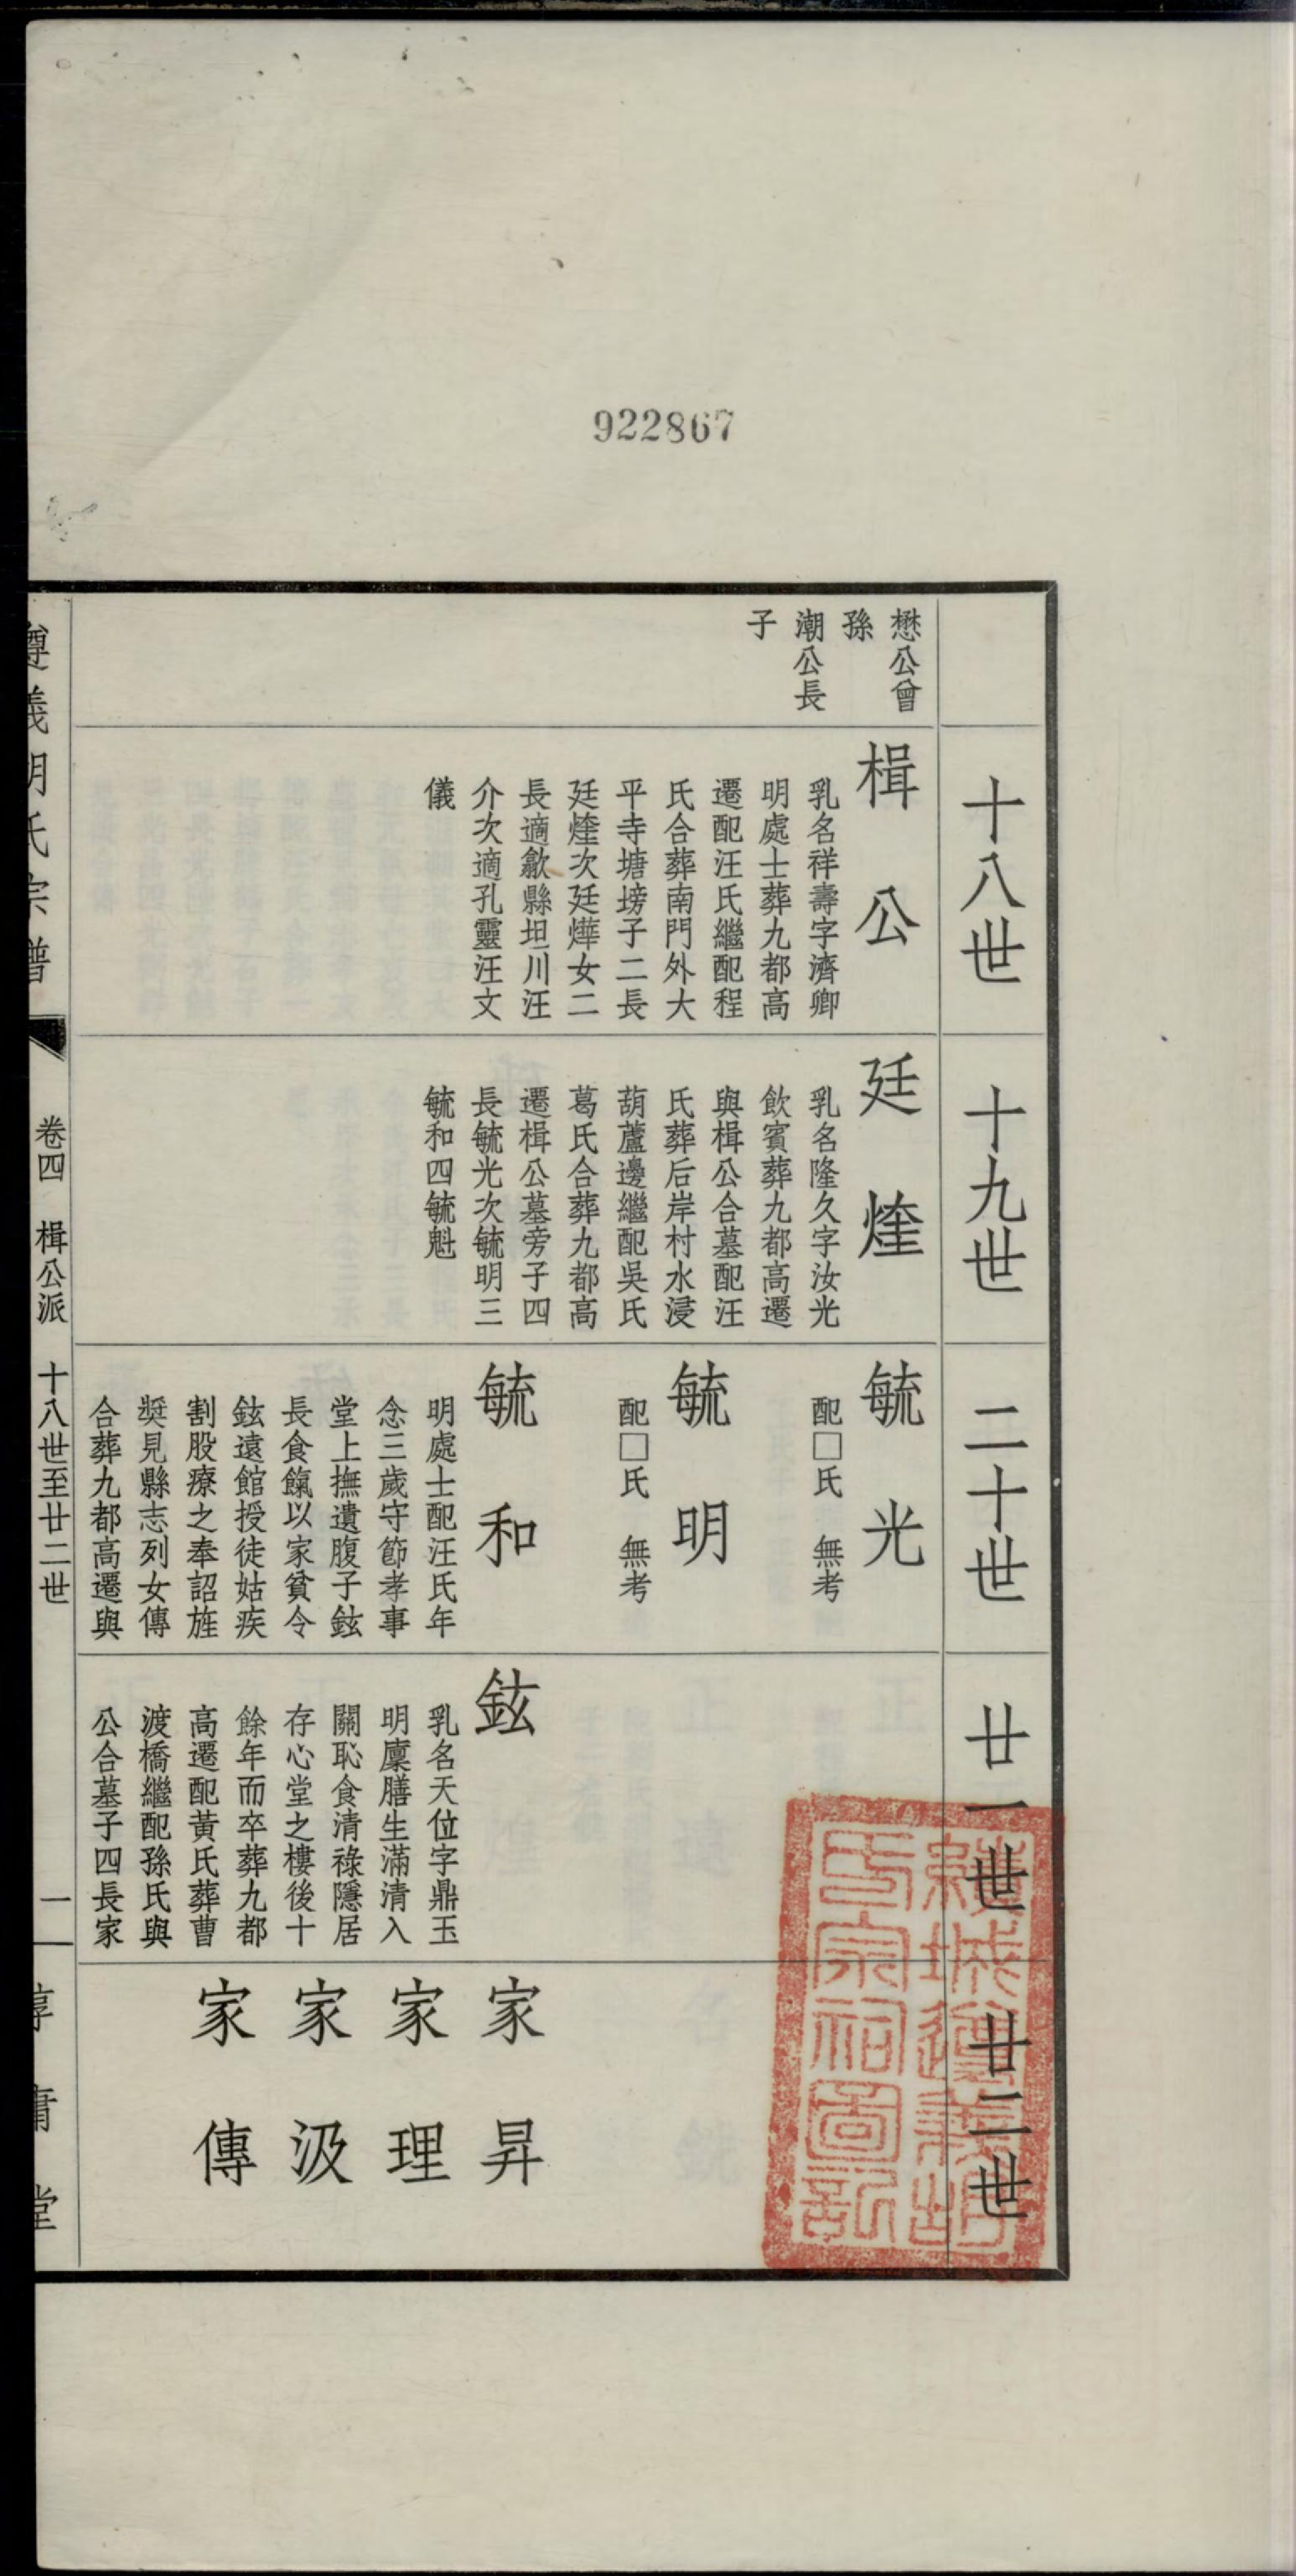 922867
十八世
十九世
二十世
廿一世
廿二世
懋公曾
孫
潮公長
子
楫公
乳名祥壽字濟卿
明處士葬九都高
遷配汪氏繼配程
氏合葬南門外大
平寺塘塝子二長
廷煃次廷燁女二
長適歙縣坦川汪
介次適孔靈汪文
儀
廷煃
乳名隆久字汝光
飲賓葬九都高遷
與楫公合墓配汪
氏葬后岸村水浸
葫蘆邊繼配吳氏
葛氏合葬九都高
遷楫公墓旁子四
長毓光次毓明三
毓和四毓魁
毓光
配□氏 無考
毓明
配□氏 無考
毓和
明處士配汪氏年
念三歲守節孝事
堂上撫遺腹子鉉
長食餼以家貧令
鉉遠館授徒姑疾
割股療之奉詔旌
奬見縣志列女傳
合葬九都高遷與
鉉
乳名天位字鼎玉
明廩膳生滿清入
關恥食清祿隱居
存心堂之樓後十
餘年而卒葬九都
高遷配黃氏葬曹
渡橋繼配孫氏與
公合墓子四長家
家昇
家理
家汲
家傳
遵義胡氏宗譜 卷四 楫公派 十八世至廿二世 一 惇庸堂